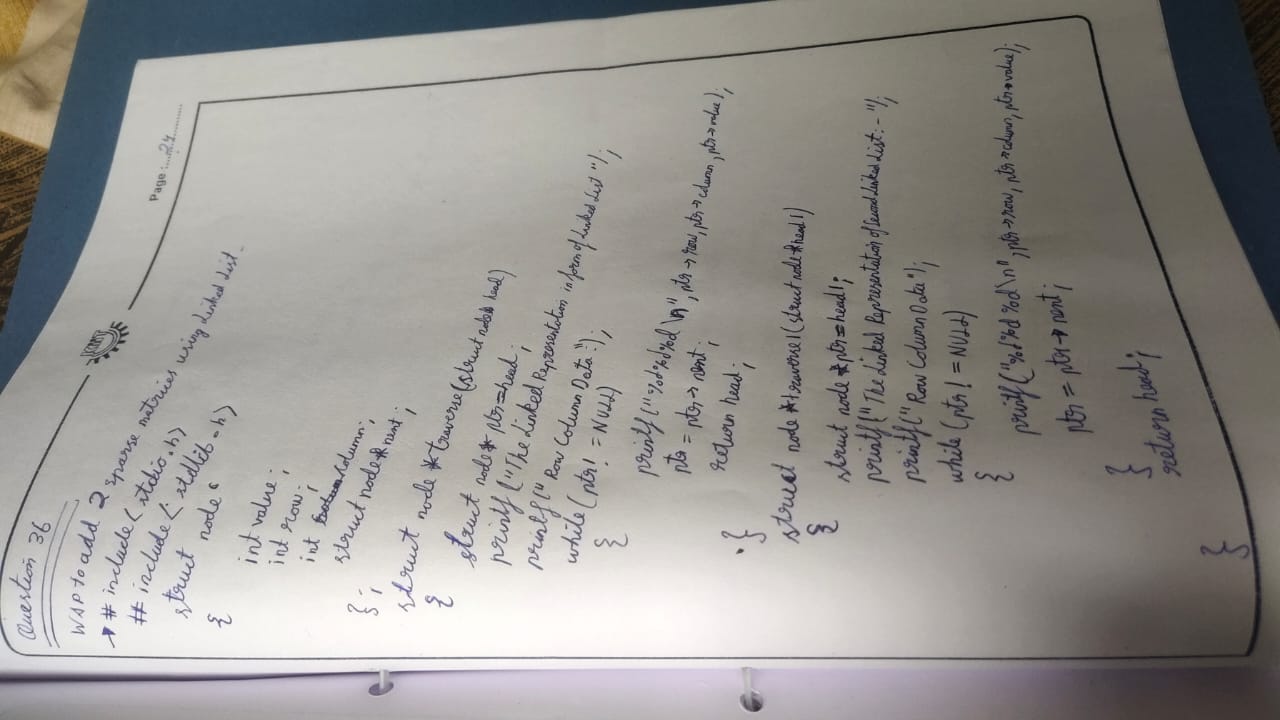 Question 36
KMV
Page :....24..........
WAP to add 2 sparse matrices using Linked List.
→ # include < stdio.h>
# include < stdlib.h>
struct node
{
int value;
int row;
int column;
struct node * next;
};
struct node * traverse(struct node* head)
{
struct node* ptr=head;
printf ("The Linked Representation in form of Linked List ");
printf(" Row Column Data:");
while (ptr! = NULL)
{
printf ("%d%d%d \n", ptr→row, ptr→column, ptr→value);
ptr = ptr→next;
return head;
}
struct node *traverse1(struct node *head1)
{
struct node *ptr=head1;
printf("The Linked Representation of Second Linked List:-");
printf("Row Column Data");
while (ptr! = NULL)
{
printf("%d%d %d\n", ptr→row, ptr→column, ptr→value);
ptr = ptr→next;
}
return head;
}